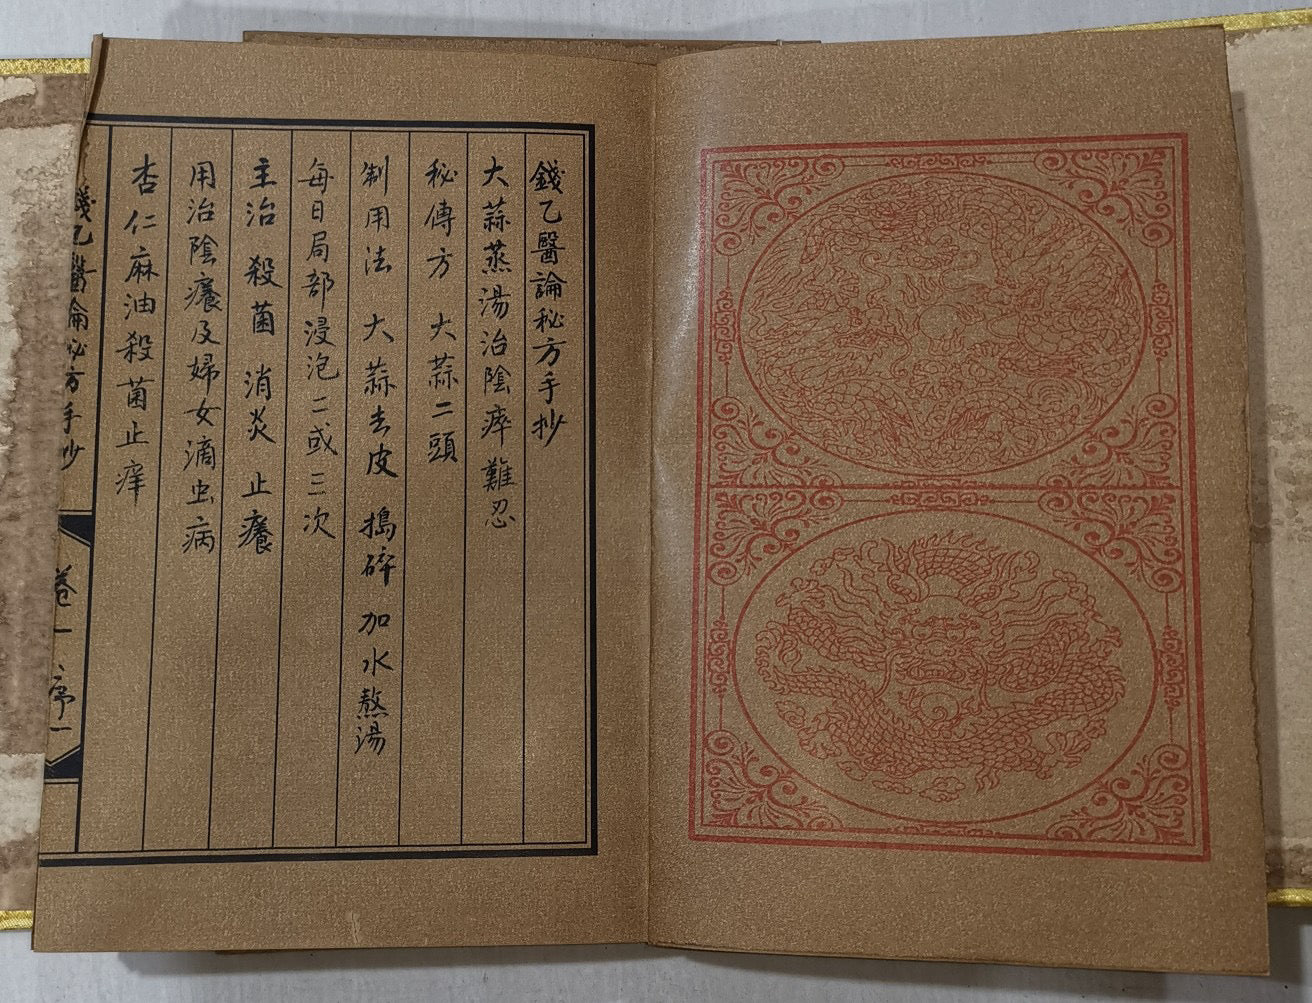 錢乙醫論秘方手抄
大蒜蒸湯治陰痺難忍
秘傳方 大蒜二頭
制用法 大蒜去皮 搗碎 加水熬湯
每日局部浸泡二或三次
主治 殺菌 消炎 止癢
用治陰癢及婦女滴虫病
杏仁麻油殺菌止痒
錢乙醫論秘方手抄
卷一
序一